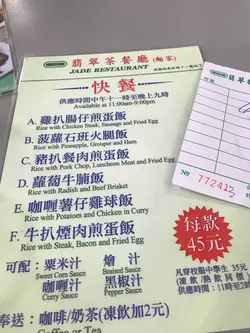 翡翠茶餐廳(麵家)
JADE RESTAURANT
快餐
供應時間中午十一時至晚上九時
Available at 11:00am-9:00pm
A. 雞扒腸仔煎蛋飯
Rice with Chicken Steak, Sausage and Fried Egg
B. 菠蘿石班火腿飯
Rice with Pineapple, Grouper and Ham
C. 豬扒餐肉煎蛋飯
Rice with Pork Chop, Luncheon Meat and Fried Egg
D. 蘿蔔牛腩飯
Rice with Radish and Beef Brisket
E. 咖喱薯仔雞球飯
Rice with Potatoes and Chicken in Curry
F. 牛扒煙肉煎蛋飯
Rice with Steak, Bacon and Fried Egg
每款
45元
可配：粟米汁 燴汁
Sweet Corn Sauce Braised Sauce
咖喱汁 黑椒汁
Curry Sauce Pepper Sauce
凡穿校服中學生 35元
(凍飲熱飲同價)
供應時間：11時至2時
奉送：咖啡/奶茶(凍飲加2元)
Coffee or Tea
翡翠
772412